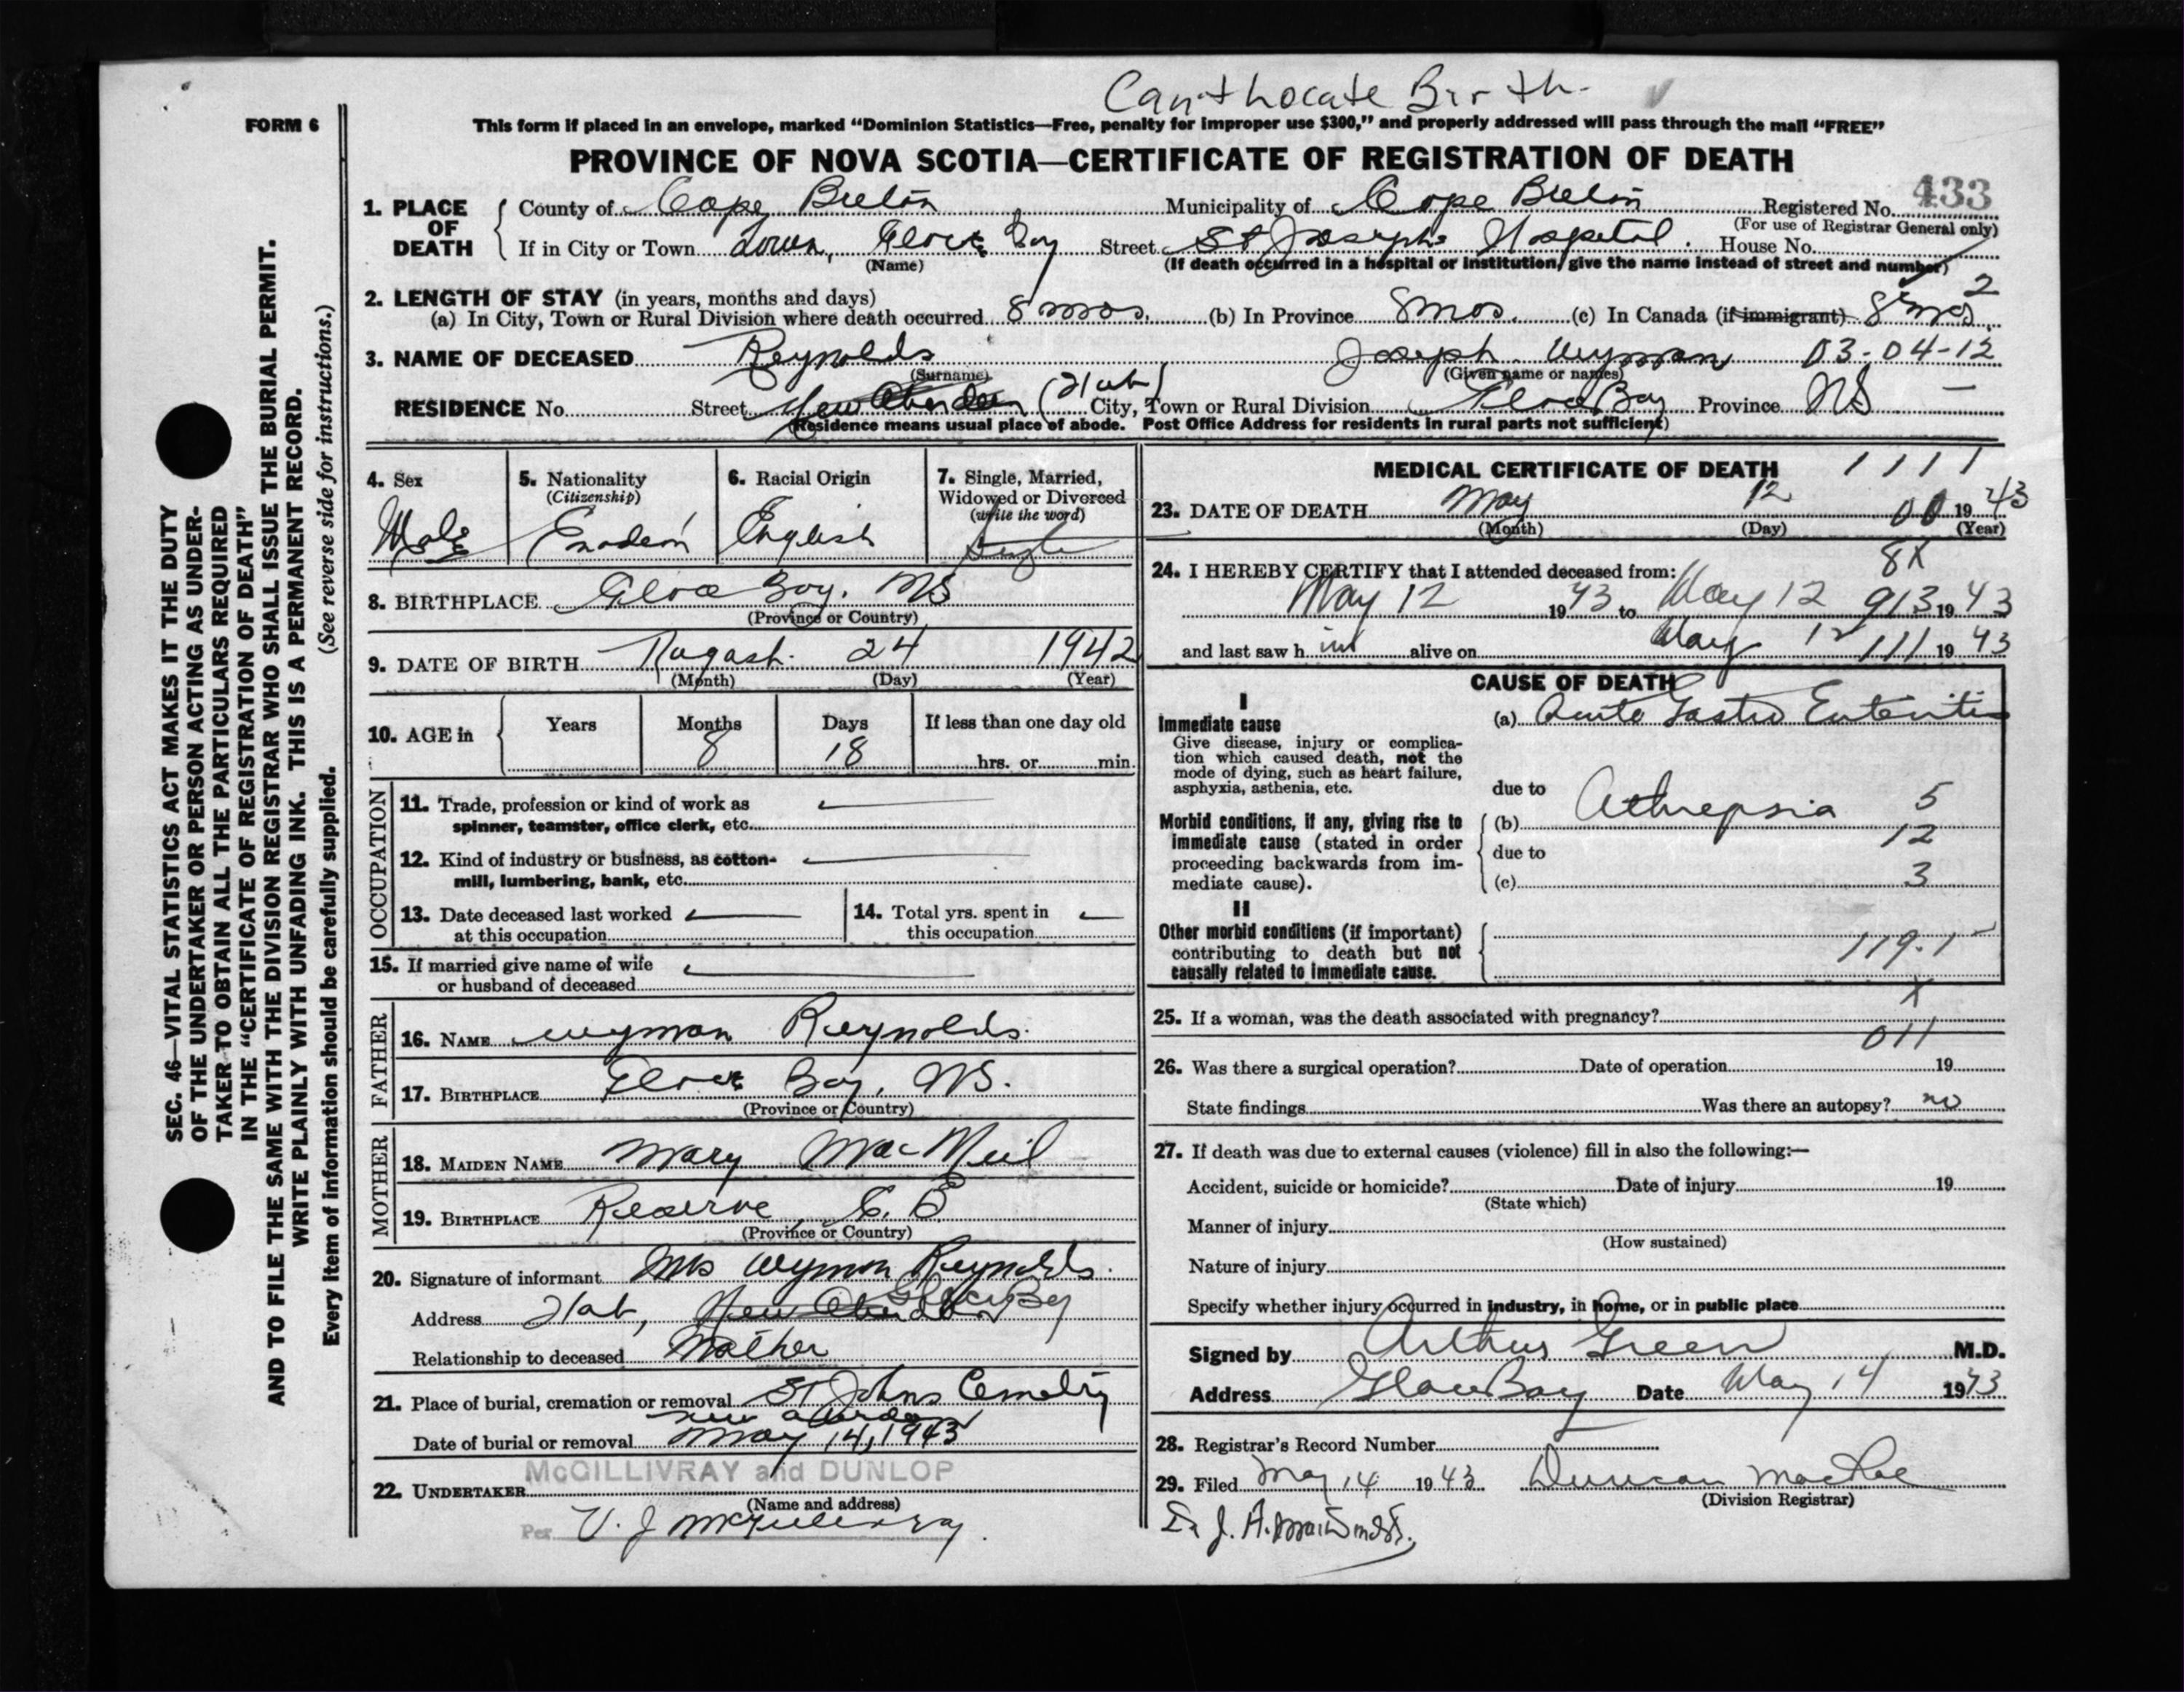 Can't Locate Birth.
FORM 6
This form if placed in an envelope, marked “Dominion Statistics—Free, penalty for improper use $300,” and properly addressed will pass through the mail “FREE”
PROVINCE OF NOVA SCOTIA—CERTIFICATE OF REGISTRATION OF DEATH
433
1. PLACE OF DEATH
County of Cape Breton Municipality of Cape Breton Registered No.
(For use of Registrar General only)
If in City or Town Town, Glace Bay Street St Josephs Hospital. House No.
(Name) (If death occurred in a hospital or institution, give the name instead of street and number)
2. LENGTH OF STAY (in years, months and days)
(a) In City, Town or Rural Division where death occurred 8 mos. (b) In Province 8 mos. (c) In Canada (if immigrant) 8 mos
2
3. NAME OF DECEASED Reynolds Joseph Wyman 03-04-12
(Surname) (Given name or names)
RESIDENCE No. Street New Aberdeen City, Town or Rural Division Glace Bay Province NS —
(Residence means usual place of abode. Post Office Address for residents in rural parts not sufficient)
4. Sex
Male
5. Nationality
(Citizenship)
6. Racial Origin
English
7. Single, Married,
Widowed or Divorced
(write the word)
Single
8. BIRTHPLACE Glace Bay. NS
(Province or Country)
9. DATE OF BIRTH 24 1942
(Month) (Day) (Year)
10. AGE in
Years
Months
8
Days
18
If less than one day old
hrs. or min.
OCCUPATION
11. Trade, profession or kind of work as
spinner, teamster, office clerk, etc.
12. Kind of industry or business, as cotton-
mill, lumbering, bank, etc.
13. Date deceased last worked
at this occupation
14. Total yrs. spent in
this occupation
15. If married give name of wife
or husband of deceased
FATHER
16. NAME Wyman Reynolds.
17. BIRTHPLACE Glace Bay, NS.
(Province or Country)
MOTHER
18. MAIDEN NAME Mary MacNeil
19. BIRTHPLACE Reserve, C. B
(Province or Country)
20. Signature of informant Mrs Wyman Reynolds.
Address 21ab, New Aberdeen Glace Bay
Relationship to deceased Mother
21. Place of burial, cremation or removal St Johns Cemetry
New Aberdeen
Date of burial or removal May 14, 1943
McGILLIVRAY and DUNLOP
22. UNDERTAKER
(Name and address)
Per V. J McGillivray.
MEDICAL CERTIFICATE OF DEATH 1111
23. DATE OF DEATH May 12 00 19 43
(Month) (Day) (Year)
8X
24. I HEREBY CERTIFY that I attended deceased from:
May 12 1943 to May 12 913 19 43
and last saw him alive on May 12 111 19 43
CAUSE OF DEATH
I
Immediate cause
Give disease, injury or complica-
tion which caused death, not the
mode of dying, such as heart failure,
asphyxia, asthenia, etc.
(a) Acute Gastro Enteritis
due to
Morbid conditions, if any, giving rise to
immediate cause (stated in order
proceeding backwards from im-
mediate cause).
(b) Athrepsia 5
due to 12
(c) 3
II
Other morbid conditions (if important)
contributing to death but not
causally related to immediate cause.
119.1
X
25. If a woman, was the death associated with pregnancy?
011
26. Was there a surgical operation? Date of operation 19
State findings Was there an autopsy? no
27. If death was due to external causes (violence) fill in also the following:—
Accident, suicide or homicide? Date of injury 19
(State which)
Manner of injury
(How sustained)
Nature of injury
Specify whether injury occurred in industry, in home, or in public place
Signed by Arthur Green M.D.
Address Glace Bay Date May 14 1943
28. Registrar's Record Number
29. Filed May 14 1943 Duncan MacRae
(Division Registrar)
SEC. 46—VITAL STATISTICS ACT MAKES IT THE DUTY
OF THE UNDERTAKER OR PERSON ACTING AS UNDER-
TAKER TO OBTAIN ALL THE PARTICULARS REQUIRED
IN THE “CERTIFICATE OF REGISTRATION OF DEATH”
AND TO FILE THE SAME WITH THE DIVISION REGISTRAR WHO SHALL ISSUE THE BURIAL PERMIT.
WRITE PLAINLY WITH UNFADING INK. THIS IS A PERMANENT RECORD.
Every item of information should be carefully supplied. (See reverse side for instructions.)